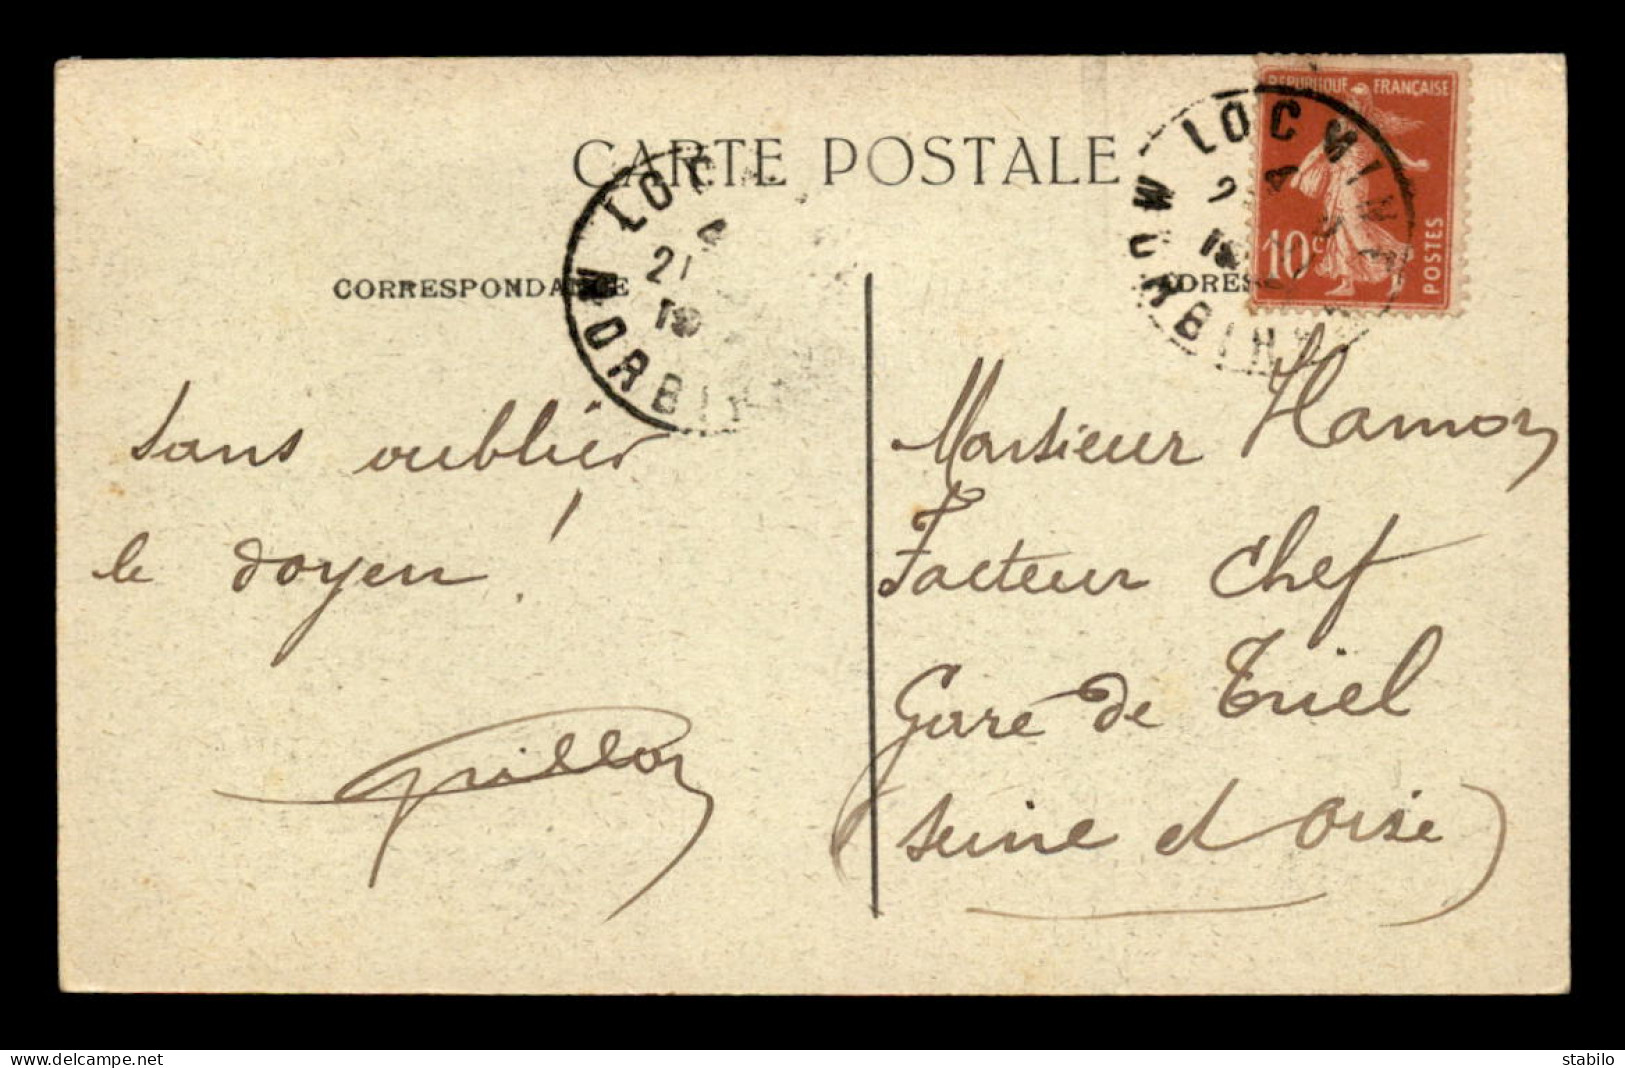 CARTE POSTALE
CORRESPONDANCE
sans oublier
le doyen !
LOC
4
21
19
MORBI
REPUBLIQUE FRANÇAISE
10c
POSTES
LOCMINE
MORBIH
ADRESSE
Monsieur Hamon
Facteur Chef
Gare de Triel
(Seine et Oise)
delcampe.net
stabilo